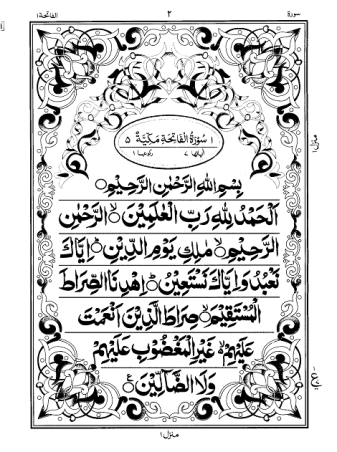 سورة ٢ الفاتحة ١
١ سُوْرَةُ الْفَاتِحَةِ مَكِّيَّةٌ ٥
اٰیاتها ٧ رکوعها ١
بِسْمِ اللهِ الرَّحْمٰنِ الرَّحِيْمِ
اَلْحَمْدُ لِلّٰهِ رَبِّ الْعٰلَمِيْنَ ۙ الرَّحْمٰنِ
الرَّحِيْمِ ۙ مٰلِكِ يَوْمِ الدِّيْنِ ؕ اِيَّاكَ
نَعْبُدُ وَاِيَّاكَ نَسْتَعِيْنُ ؕ اِهْدِنَا الصِّرَاطَ
الْمُسْتَقِيْمَ ۙ صِرَاطَ الَّذِيْنَ اَنْعَمْتَ
عَلَيْهِمْ ۙ غَيْرِ الْمَغْضُوْبِ عَلَيْهِمْ
وَلَا الضَّآلِّيْنَ
منزل ١
منزل ١